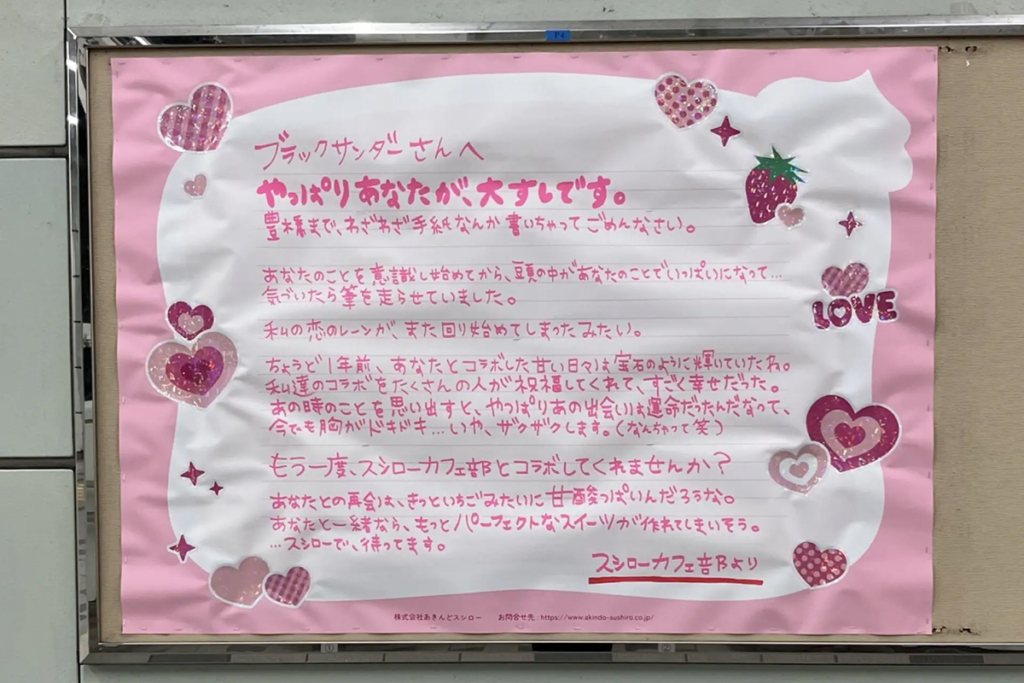 P4
ブラックサンダーさんへ
やっぱりあなたが、大すしです。
豊橋まで、わざわざ手紙なんか書いちゃってごめんなさい。
あなたのことを意識し始めてから、頭の中があなたのことでいっぱいになって…
気づいたら筆を走らせていました。
私の恋のレーンが、また回り始めてしまったみたい。
ちょうど1年前、あなたとコラボした甘い日々は宝石のように輝いていたね。
私達のコラボをたくさんの人が祝福してくれて、すごく幸せだった。
あの時のことを思い出すと、やっぱりあの出会いは運命だったんだなって、
今でも胸がドキドキ…いや、ザクザクします。(なんちゃって笑)
もう一度、スシローカフェ部とコラボしてくれませんか?
あなたとの再会は、きっといちごみたいに甘酸っぱいんだろうな。
あなたと一緒なら、もっとパーフェクトなスイーツが作れてしまいそう。
…スシローで、待ってます。
スシローカフェ部より
LOVE
株式会社あきんどスシロー お問合せ先 https://www.akindo-sushiro.co.jp/